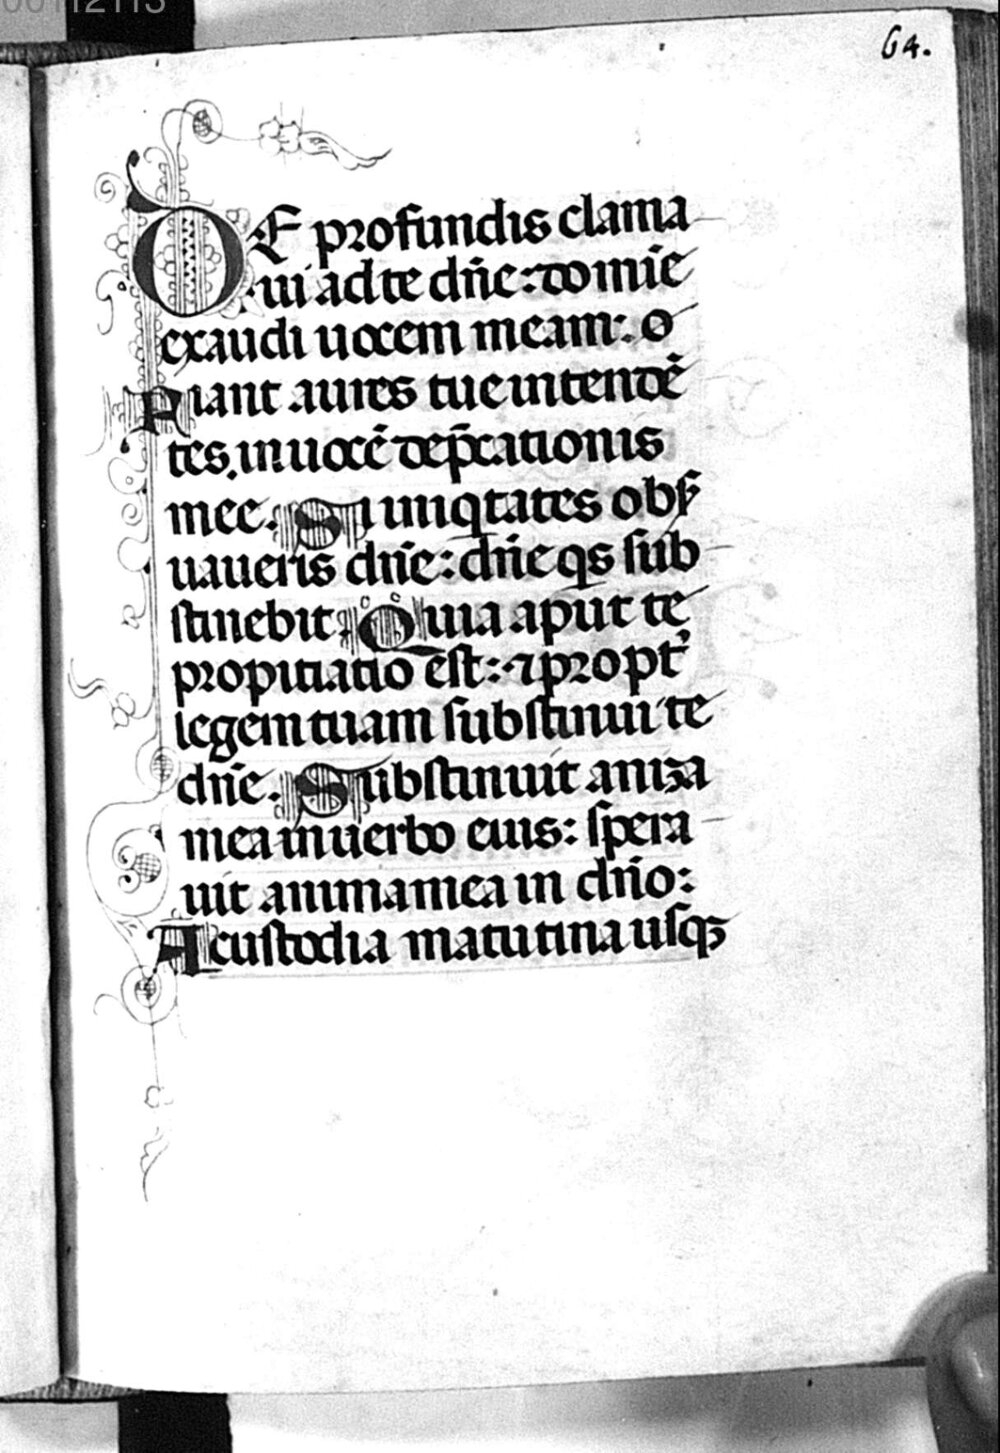 00112113
64.
DE profundis clama
ui ad te dñe: domĩe
exaudi uocem meam: o
Fiant aures tue intendẽ
tes. in uocẽ dep̃cationis
mee. Si iniqtates obs̃
uaueris dñe: dñe qs sub
stinebit: Quia aput te
propitiatio est: ⁊ propt̃
legem tuam substinui te
dñe. Substinuit anima
mea in uerbo eius: spera
uit anima mea in dño:
A custodia matutina usqꝫ